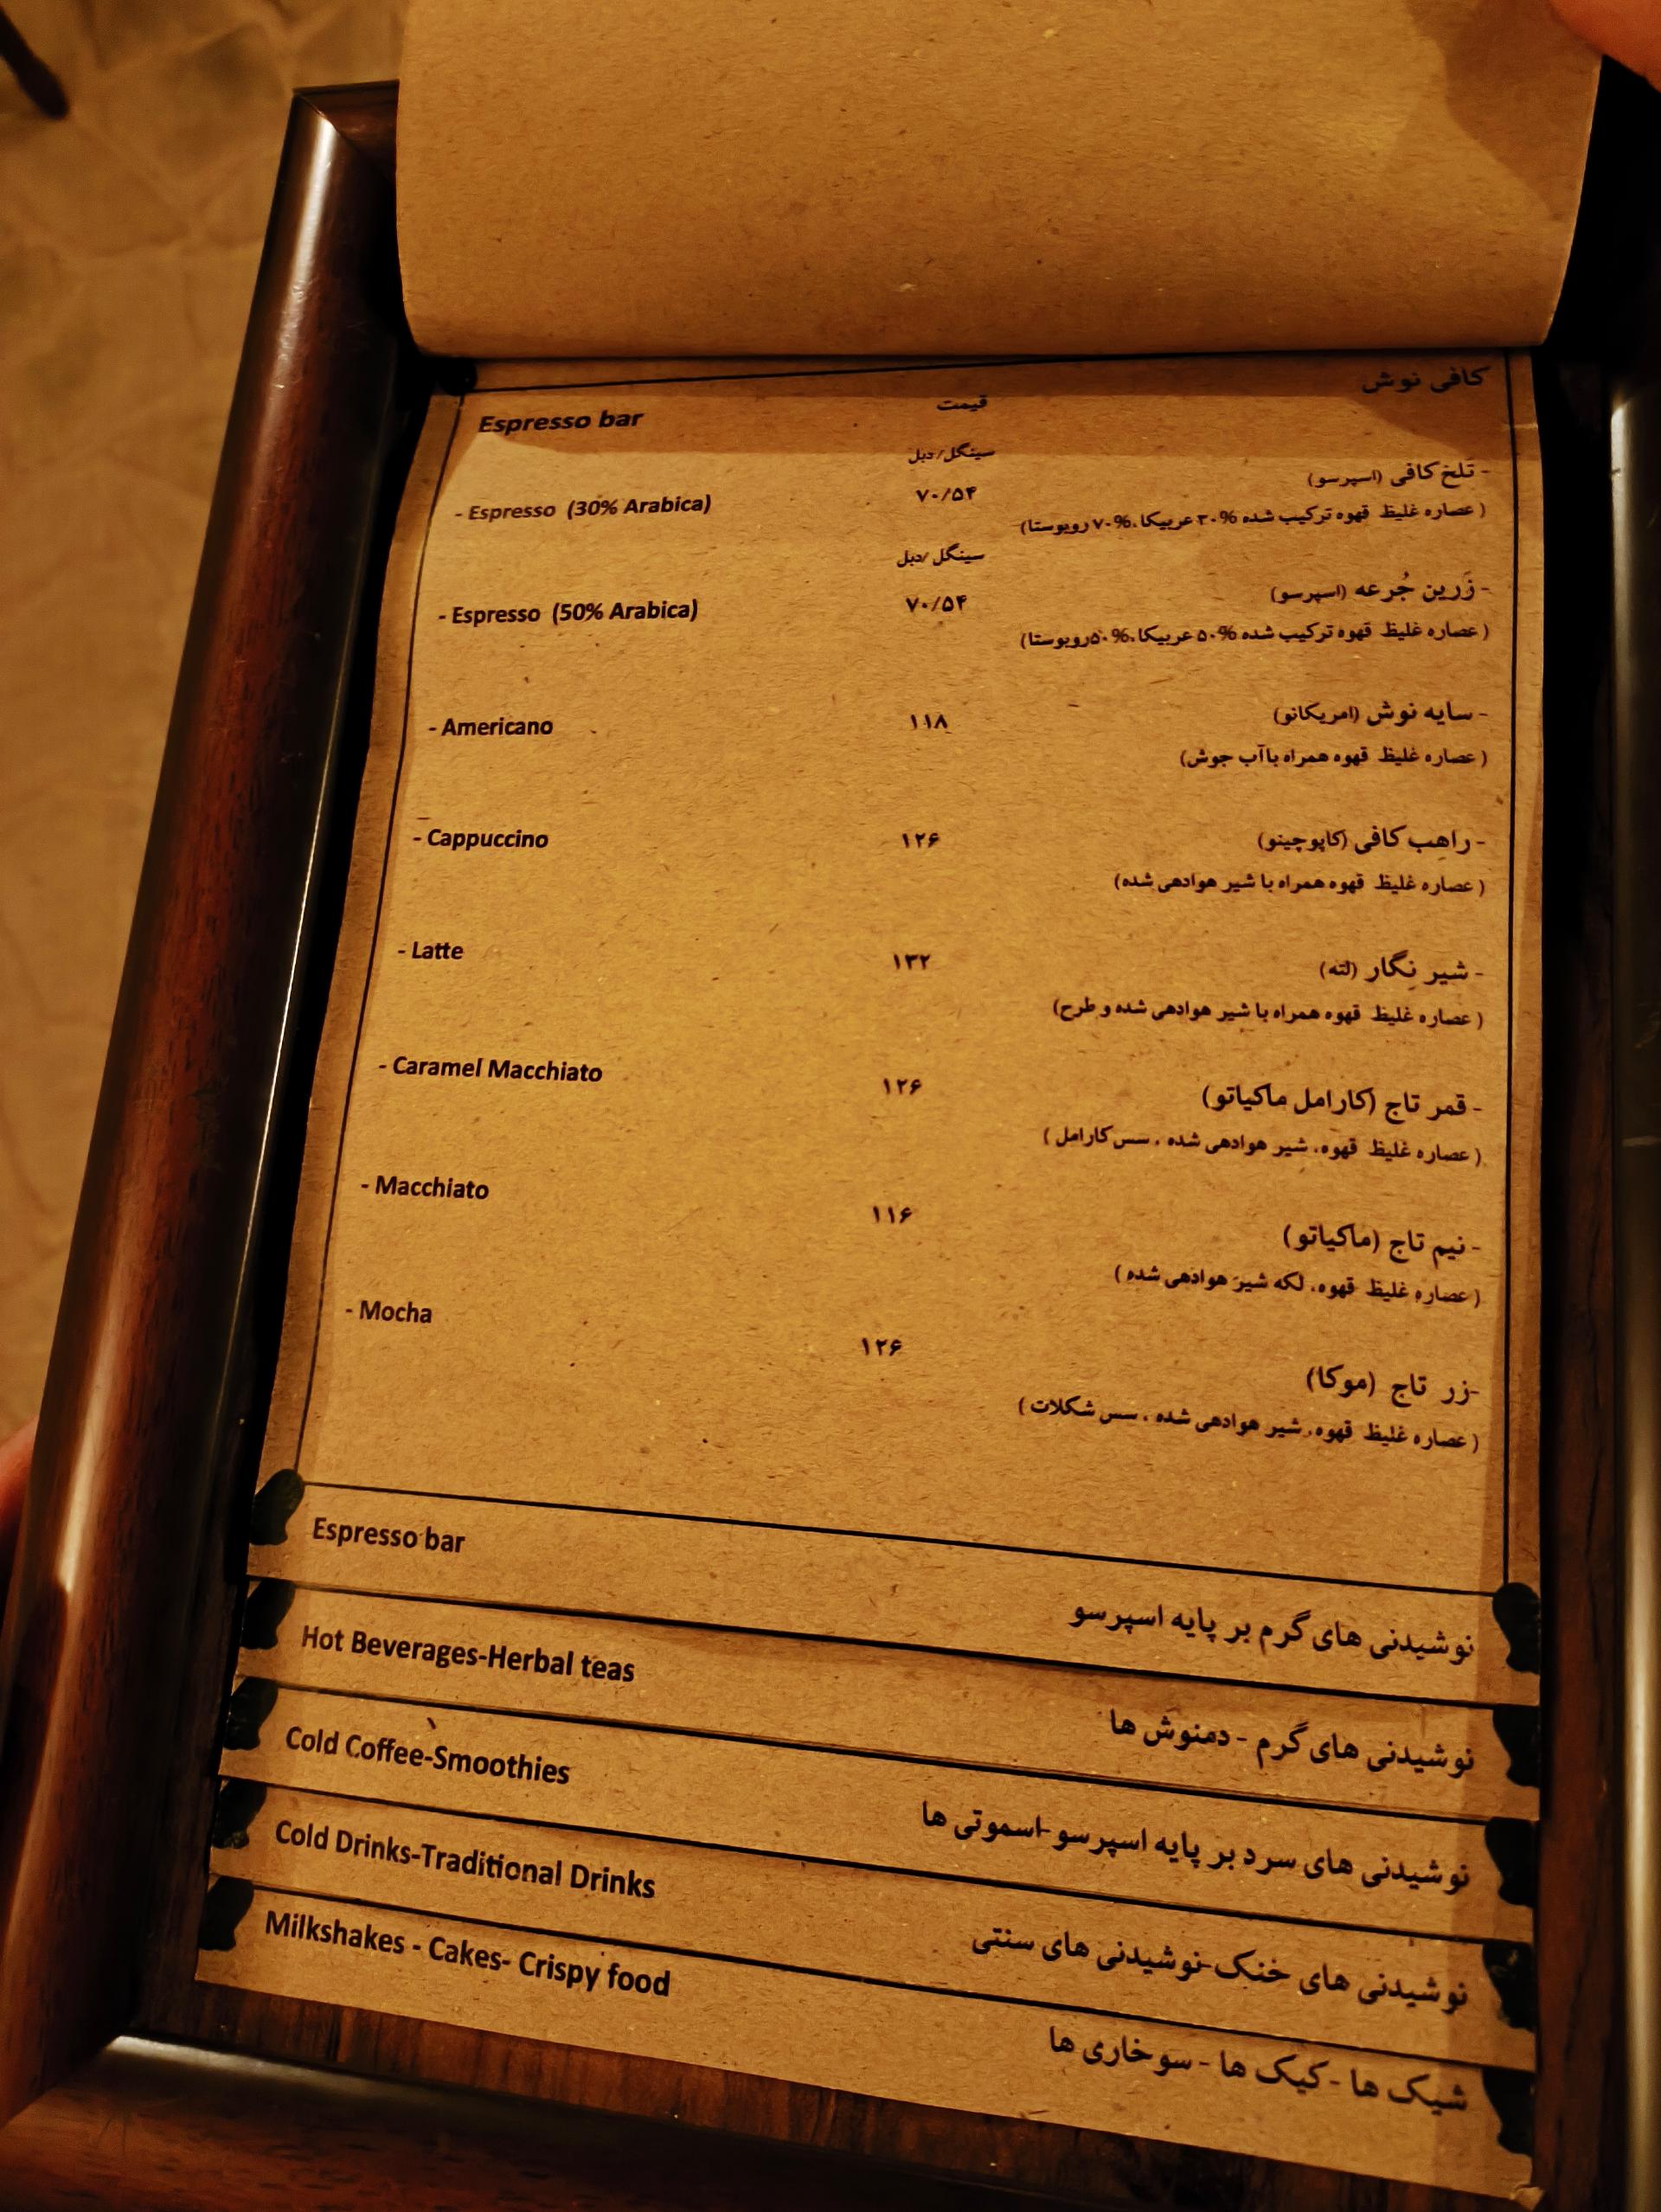 Espresso bar قیمت کافی نوش
سینگل/دبل
- Espresso (30% Arabica) ۷۰/۵۴ - تلخ کافی (اسپرسو)
( عصاره غلیظ قهوه ترکیب شده %۳۰ عربیکا، %۷۰ روبوستا)
سینگل/دبل
- Espresso (50% Arabica) ۷۰/۵۴ - زَرین جُرعه (اسپرسو)
( عصاره غلیظ قهوه ترکیب شده %۵۰ عربیکا، %۵۰ روبوستا)
- Americano ۱۱۸ - سایه نوش (امریکانو)
( عصاره غلیظ قهوه همراه باآب جوش)
- Cappuccino ۱۲۶ - راهب کافی (کاپوچینو)
( عصاره غلیظ قهوه همراه با شیر هوادهی شده)
- Latte ۱۳۲ - شیر نِگار (لته)
( عصاره غلیظ قهوه همراه با شیر هوادهی شده و طرح)
- Caramel Macchiato ۱۲۶ - قمر تاج (کارامل ماکیاتو)
( عصاره غلیظ قهوه، شیر هوادهی شده ، سس کارامل )
- Macchiato ۱۱۶ - نیم تاج (ماکیاتو)
( عصاره غلیظ قهوه، لکه شیر هوادهی شده )
- Mocha ۱۲۶ -زر تاج (موکا)
( عصاره غلیظ قهوه، شیر هوادهی شده ، سس شکلات )
Espresso bar نوشیدنی های گرم بر پایه اسپرسو
Hot Beverages-Herbal teas نوشیدنی های گرم - دمنوش ها
Cold Coffee-Smoothies نوشیدنی های سرد بر پایه اسپرسو-اسموتی ها
Cold Drinks-Traditional Drinks نوشیدنی های خنک-نوشیدنی های سنتی
Milkshakes - Cakes- Crispy food شیک ها -کیک ها - سوخاری ها